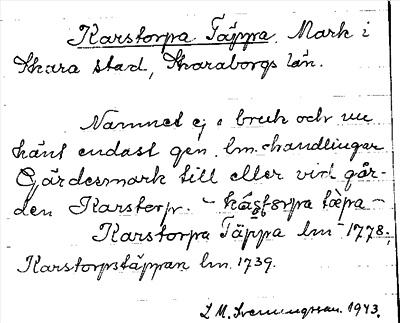 Karstorpa Täppa. Mark i
Skara stad, Skaraborgs län.
Namnet ej i bruk och nu
känt endast gen. lm.-handlingar
Gärdesmark till eller vid går-
den Karstorp. - kastorpa tæpa -
Karstorpa Täppa lm 1778.,
Karstorpstäppan lm. 1739.
L M. Svenungsson. 1943.